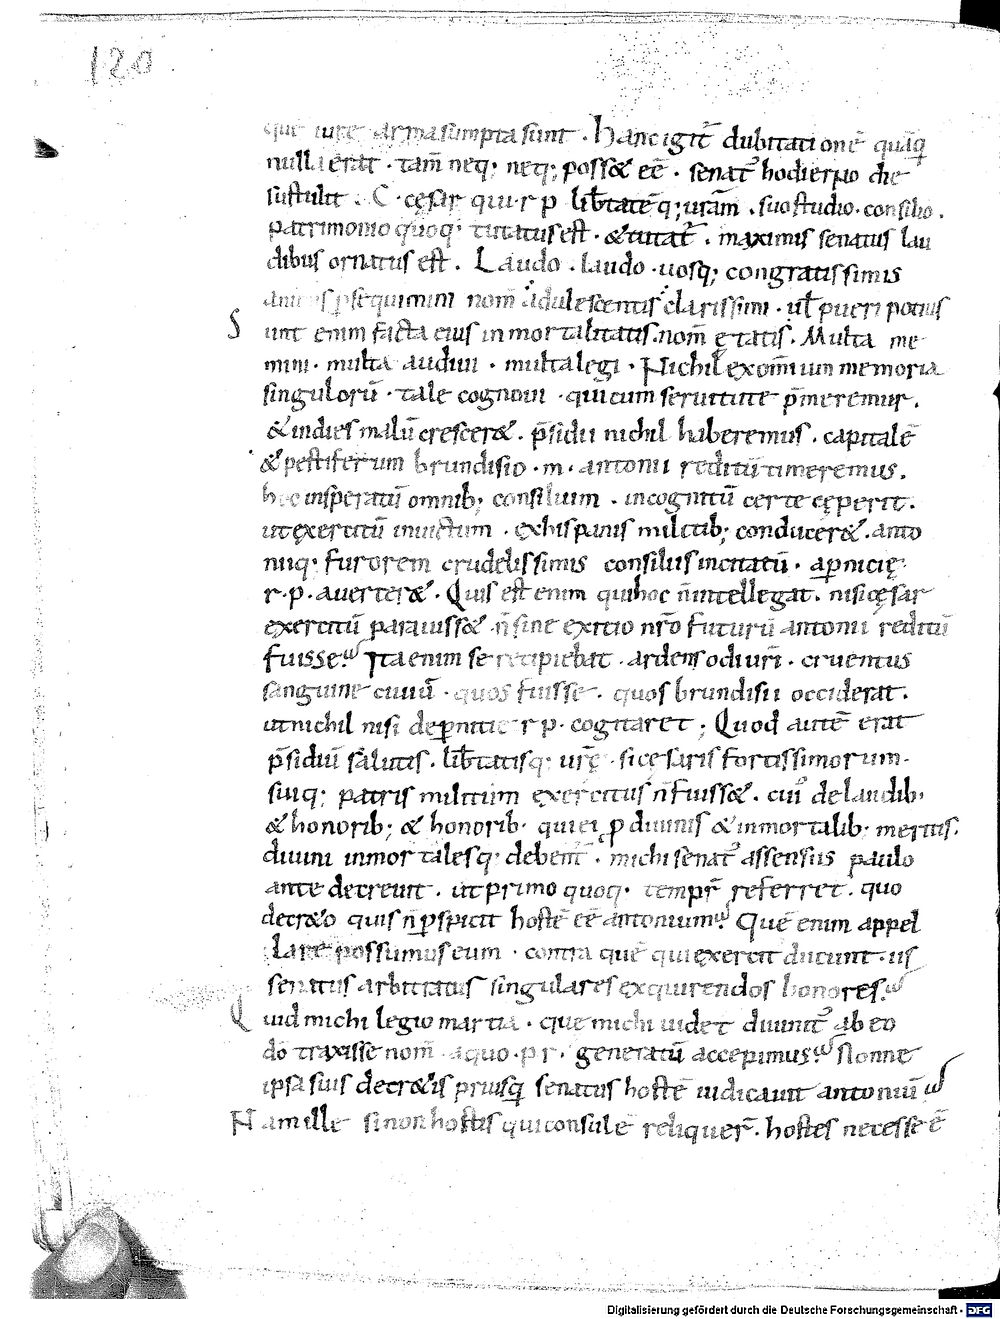 120
que iure arma sumpta sunt . hanc igit̄ dubitationē quāq̄
nulla erat . tam̄ neq; neq; poss& eē . senat᷒ hodierno die
sustulit . C . cęsar qui . r p lib̄tatē q; urām . suo studio . consilio .
patrimonio quoq; tutatus est . & tutat᷒ . maximis senatus lau
dibus ornatus est . Laudo . laudo . uosq; congratissimis
animis p̱sequimini nom̄ adulescentis clarissimi . ul̄ pueri potius
S unt enim facta eius inmortalitatis . nom̄ ętatis . Multa me
mini . multa audiui . multa legi . Nichil ex om̄ium memoria
singulorū . tale cognoui . qui cum seruitute p̄meremur .
& indies malū crescer& . p̄sidii nichil haberemus . capitalē
& pestiferum brundisio . m . antonii reditū timeremus .
hoc insperatū omnib; consilium . incognitū certe cęperit .
ut exercitū inuictum . ex hispanis militib; conducer& . anto
niiq; furorem crudelissimis consiliis incitatū . a p̱nicię
r . p . auerter& . Quis est enim qui hoc n̄ intellegat . nisi cęsar
exercitū parauiss& . n̄ sine exitio nr̄o futurū antonii reditū
fuisse? Ita enim se recipiebat . ardens odi ur̄i . cruentus
sanguine ciuiū . quos fuisse . quos brundisii occiderat .
ut nichil nisi de p̱nitie r p . cogitaret ; Quod autē erat
p̄sidiū salutis . lib̄tatisq; ur̄ę . si cesaris fortissimorum .
suiq; patris militum exercitus n̄ fuiss& . cui᷒ de laudib;
& honorib; & honorib; qui ei p̱ diuinis & inmortalib; meritis .
diuini inmortalesq; debent̄ . michi senat᷒ assensus paulo
ante decreuit . ut primo quoq; tempr̄ referret . quo
decr&o quis n̄ p̱spicit hostē eē antonium? Quē enim appel
lare possumus eum . contra quē qui exercit ducunt . iis
senatus arbitratus singulares exquirendos honores?
Q uid michi legio martia . que michi uidet diuinit᷒ ab eo
dō traxisse nom̄ . a quo . p r . generatū accepimus? Nonne
ipsa suis decr&is priusq̄ senatus hostē iudicauit antoniū?
N am ille si non hostis qui consulē reliquer̄ . hostes necesse ē
Digitalisierung gefördert durch die Deutsche Forschungsgemeinschaft - DFG